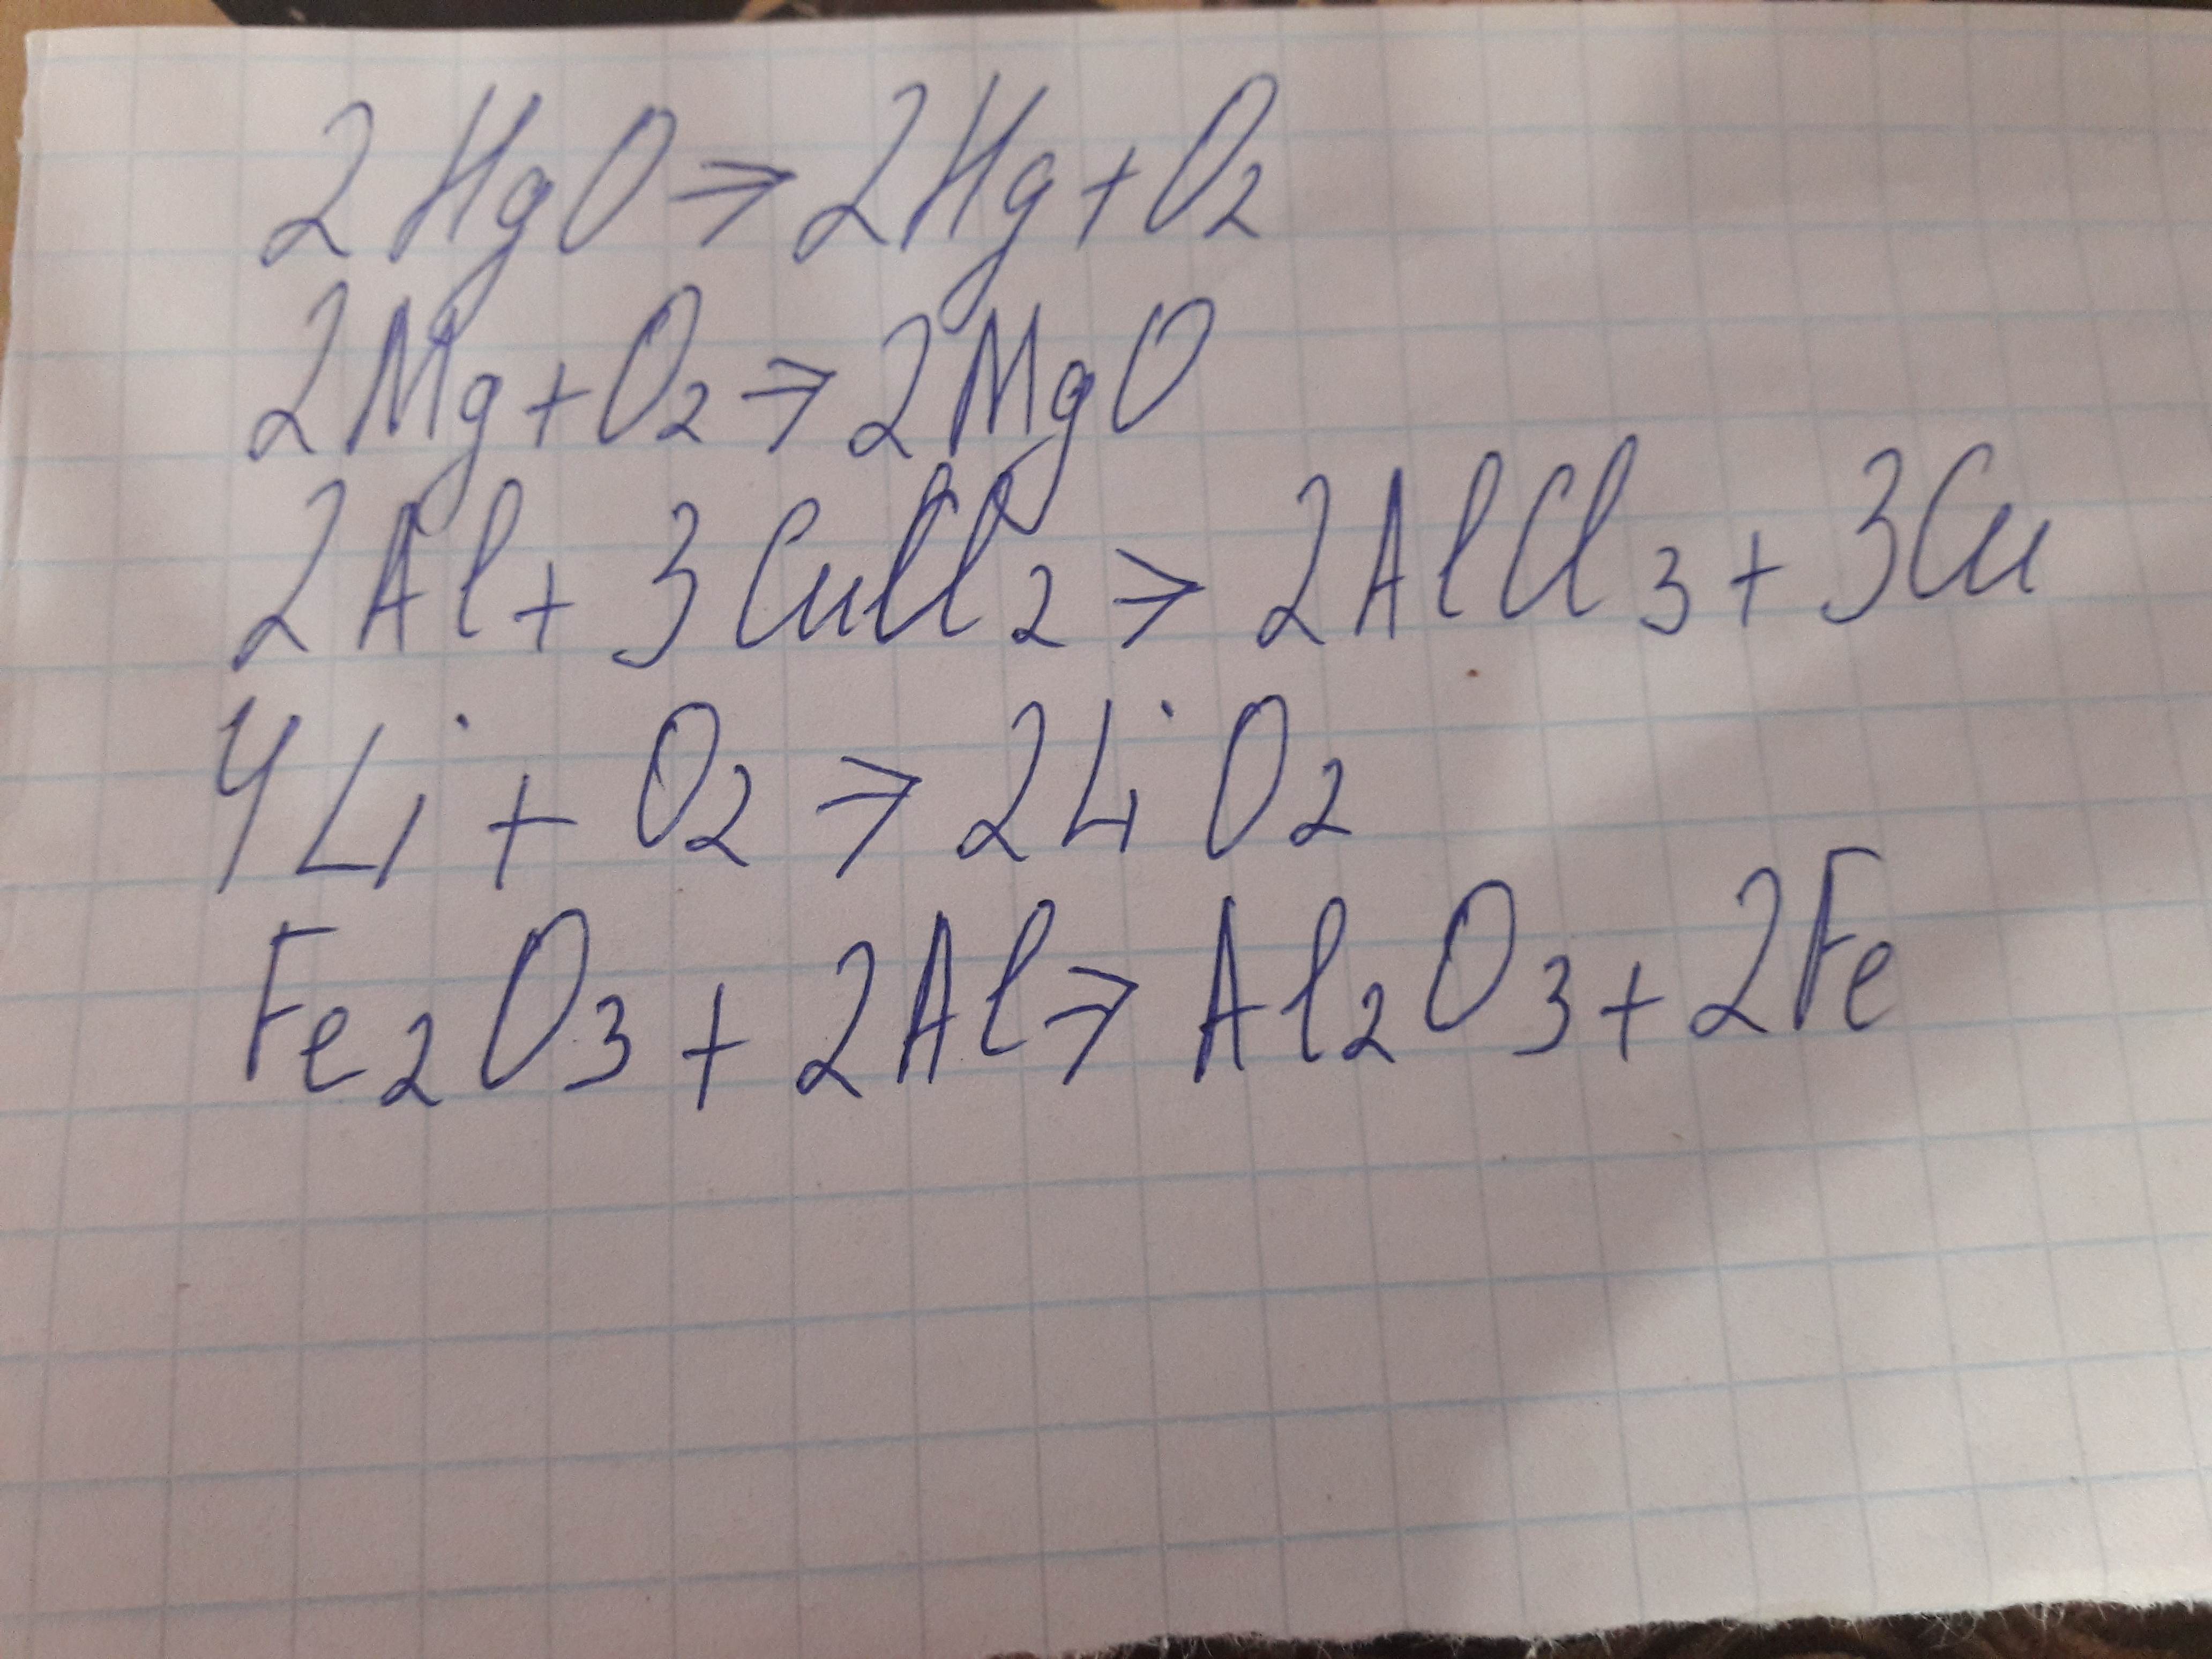 2HgO ⇒ 2Hg + O₂
2Mg + O₂ ⇒ 2MgO
2Al + 3CuCl₂ ⇒ 2AlCl₃ + 3Cu
4Li + O₂ ⇒ 2LiO₂
Fe₂O₃ + 2Al ⇒ Al₂O₃ + 2Fe